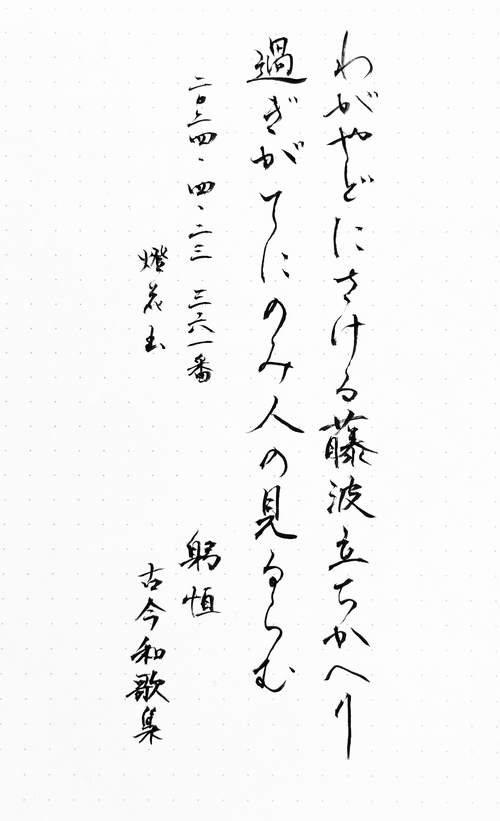 わがやどにさける藤波立ちかへり
過ぎがてにのみ人の見るらむ
二〇二四、四、二三 三六一番
燈花玉
躬恒
古今和歌集